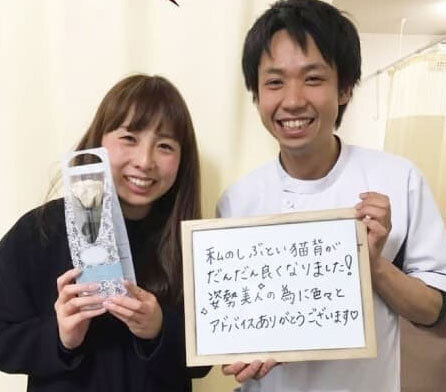 私のしぶとい猫背が
だんだん良くなりました!
姿勢美人の為に色々と
アドバイスありがとうございます♡